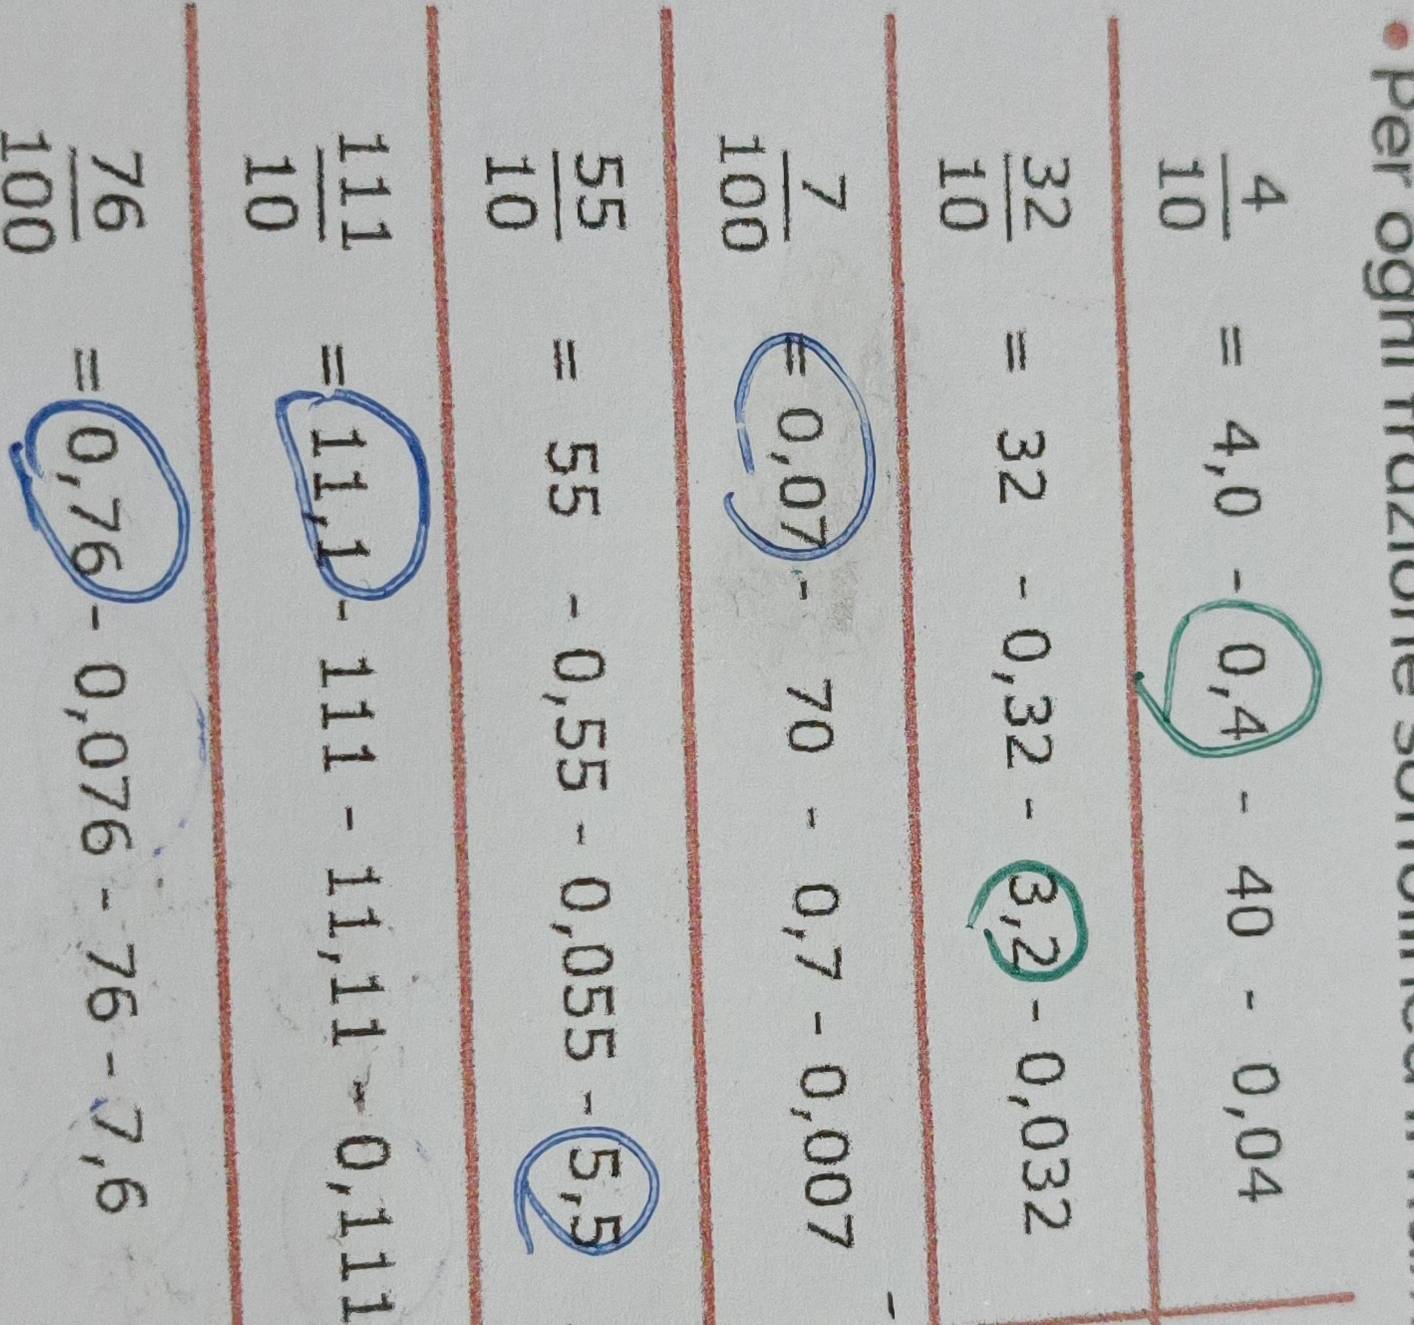 • Per ogni frazione sottolinea il
4/10 = 4,0 - 0,4 - 40 - 0,04
32/10 = 32 - 0,32 - 3,2 - 0,032
7/100 = 0,07 - 70 - 0,7 - 0,007
55/10 = 55 - 0,55 - 0,055 - 5,5
111/10 = 11,1 - 111 - 11,11 - 0,111
76/100 = 0,76 - 0,076 - 76 - 7,6